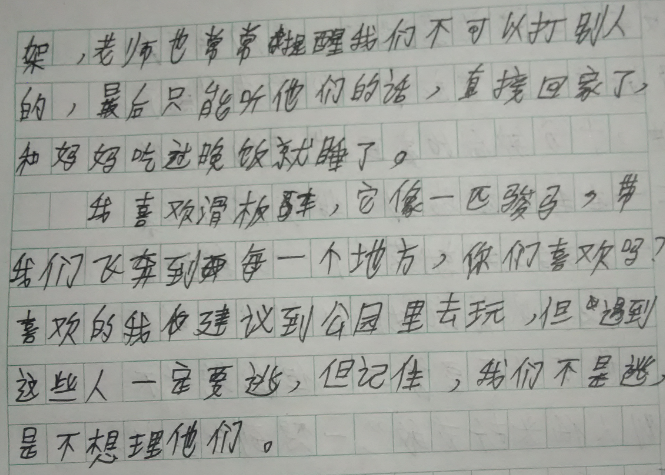 架，老师也常常提醒我们不可以打别人
的，最后只能听他们的话，直接回家了，
和妈妈吃过晚饭就睡了。
我喜欢滑板车，它像一匹骏马，带
我们飞奔到每一个地方，你们喜欢吗？
喜欢的我建议到公园里去玩，但遇到
这些人一定要逃，但记住，我们不是逃，
是不想理他们。